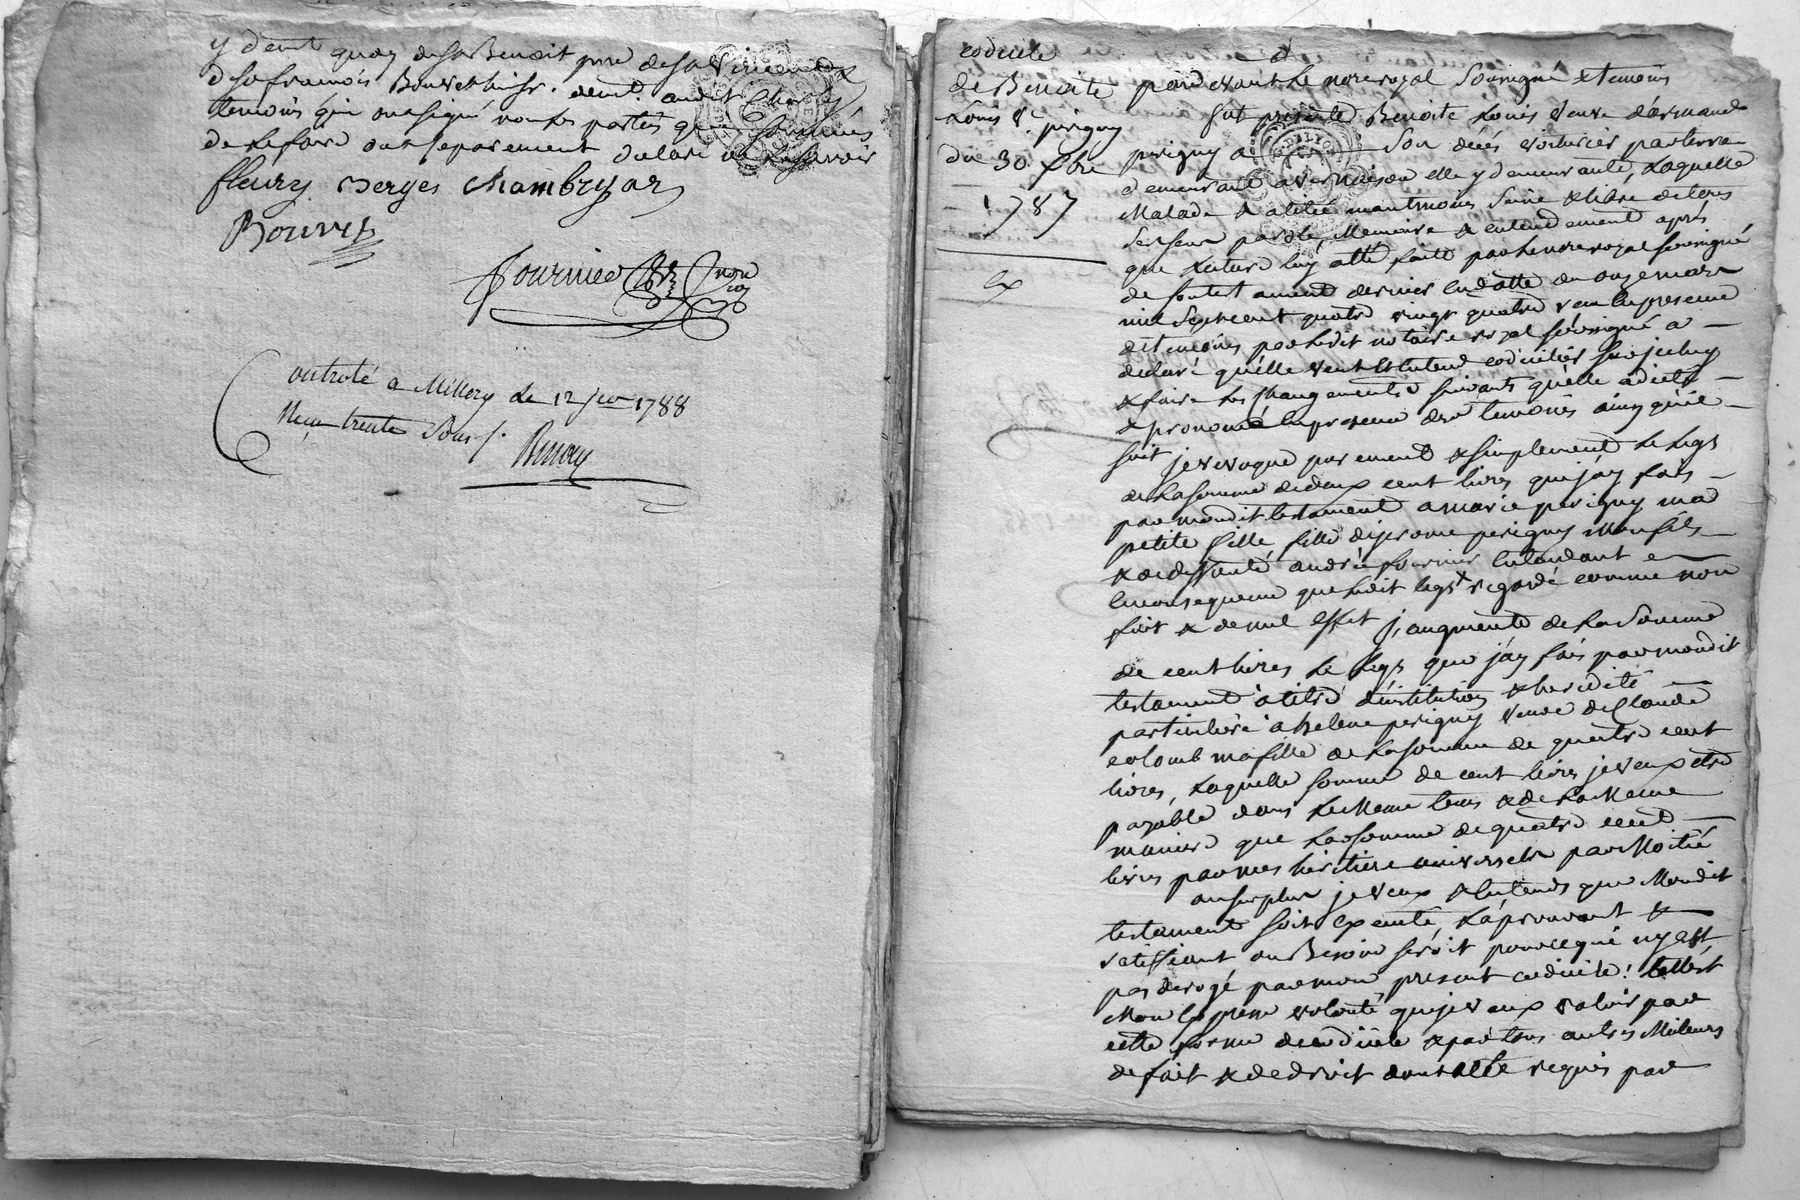 y demt quay de sr Benoit pere de sr Vincent &
de sr francois Bouvet huisr. demt. audit Charly
temoins qui ont signé non les parties qui sommées
de le faire ont separement declaré ne le scavoir
fleury Berges Chambeyar
Bouvet
Fournier
controlé a Millery le 12 jer 1788
Recu trente sous
codicile
de Benoite
Louis Ve. perigny
du 30 Xbre
1787
ex
pardevant le nore royal soussigné & temoins
fut presente Benoite Louis veuve d'armand
perigny a son décés voiturier par terre
demeurant a vernaison elle y demeurante, Laquelle
Malade & alitée neantmoins saine & libre de tous
ses sens parole, Memoire & entendement apres
que lecture luy a été faite par le nore royal soussigné
de son testament dernier en datte du onze mars
mil sept cent quatre vingt quatre reçu en presence
de temoins par ledit notaire royal soussigné a
declaré qu'elle veut & entend codiciler sur jceluy
& faire les changements suivants qu'elle a dicté
& prononcé en presence des temoins ainsy qu'il
suit je revoque purement & simplement le legs
de la somme de deux cent livres que j'ay fais
par mondit testament a marie perigny ma
petite fille fille de jerome perigny mon fils
& de andré fournier entendant
en consequence que ledit legs regardé comme non
fait & de nul effet j'augmente de la somme
de cent livres le legs que j'ay fais par mondit
testament à titre d'institution & heredité
particuliere à helene perigny veuve de Claude
colomb ma fille de la somme de quatre cent
livres, Laquelle somme de cent livres je veux etre
payable dans le Meme tems & de la Meme
maniere que la somme de quatre cent
livres par mes heritiers universels par Moitié
au surplus je veux & entends que Mondit
testament soit executé, l'aprouvant &
ratiffiant au Besoin seroit pour ce qui n'y est
pas derogé par mon present codicile! telle est
Mon expresse volonté que je veux valoir par
cette forme de codicile & par tous autres Meilleurs
de fait & de droit dont acte requis par